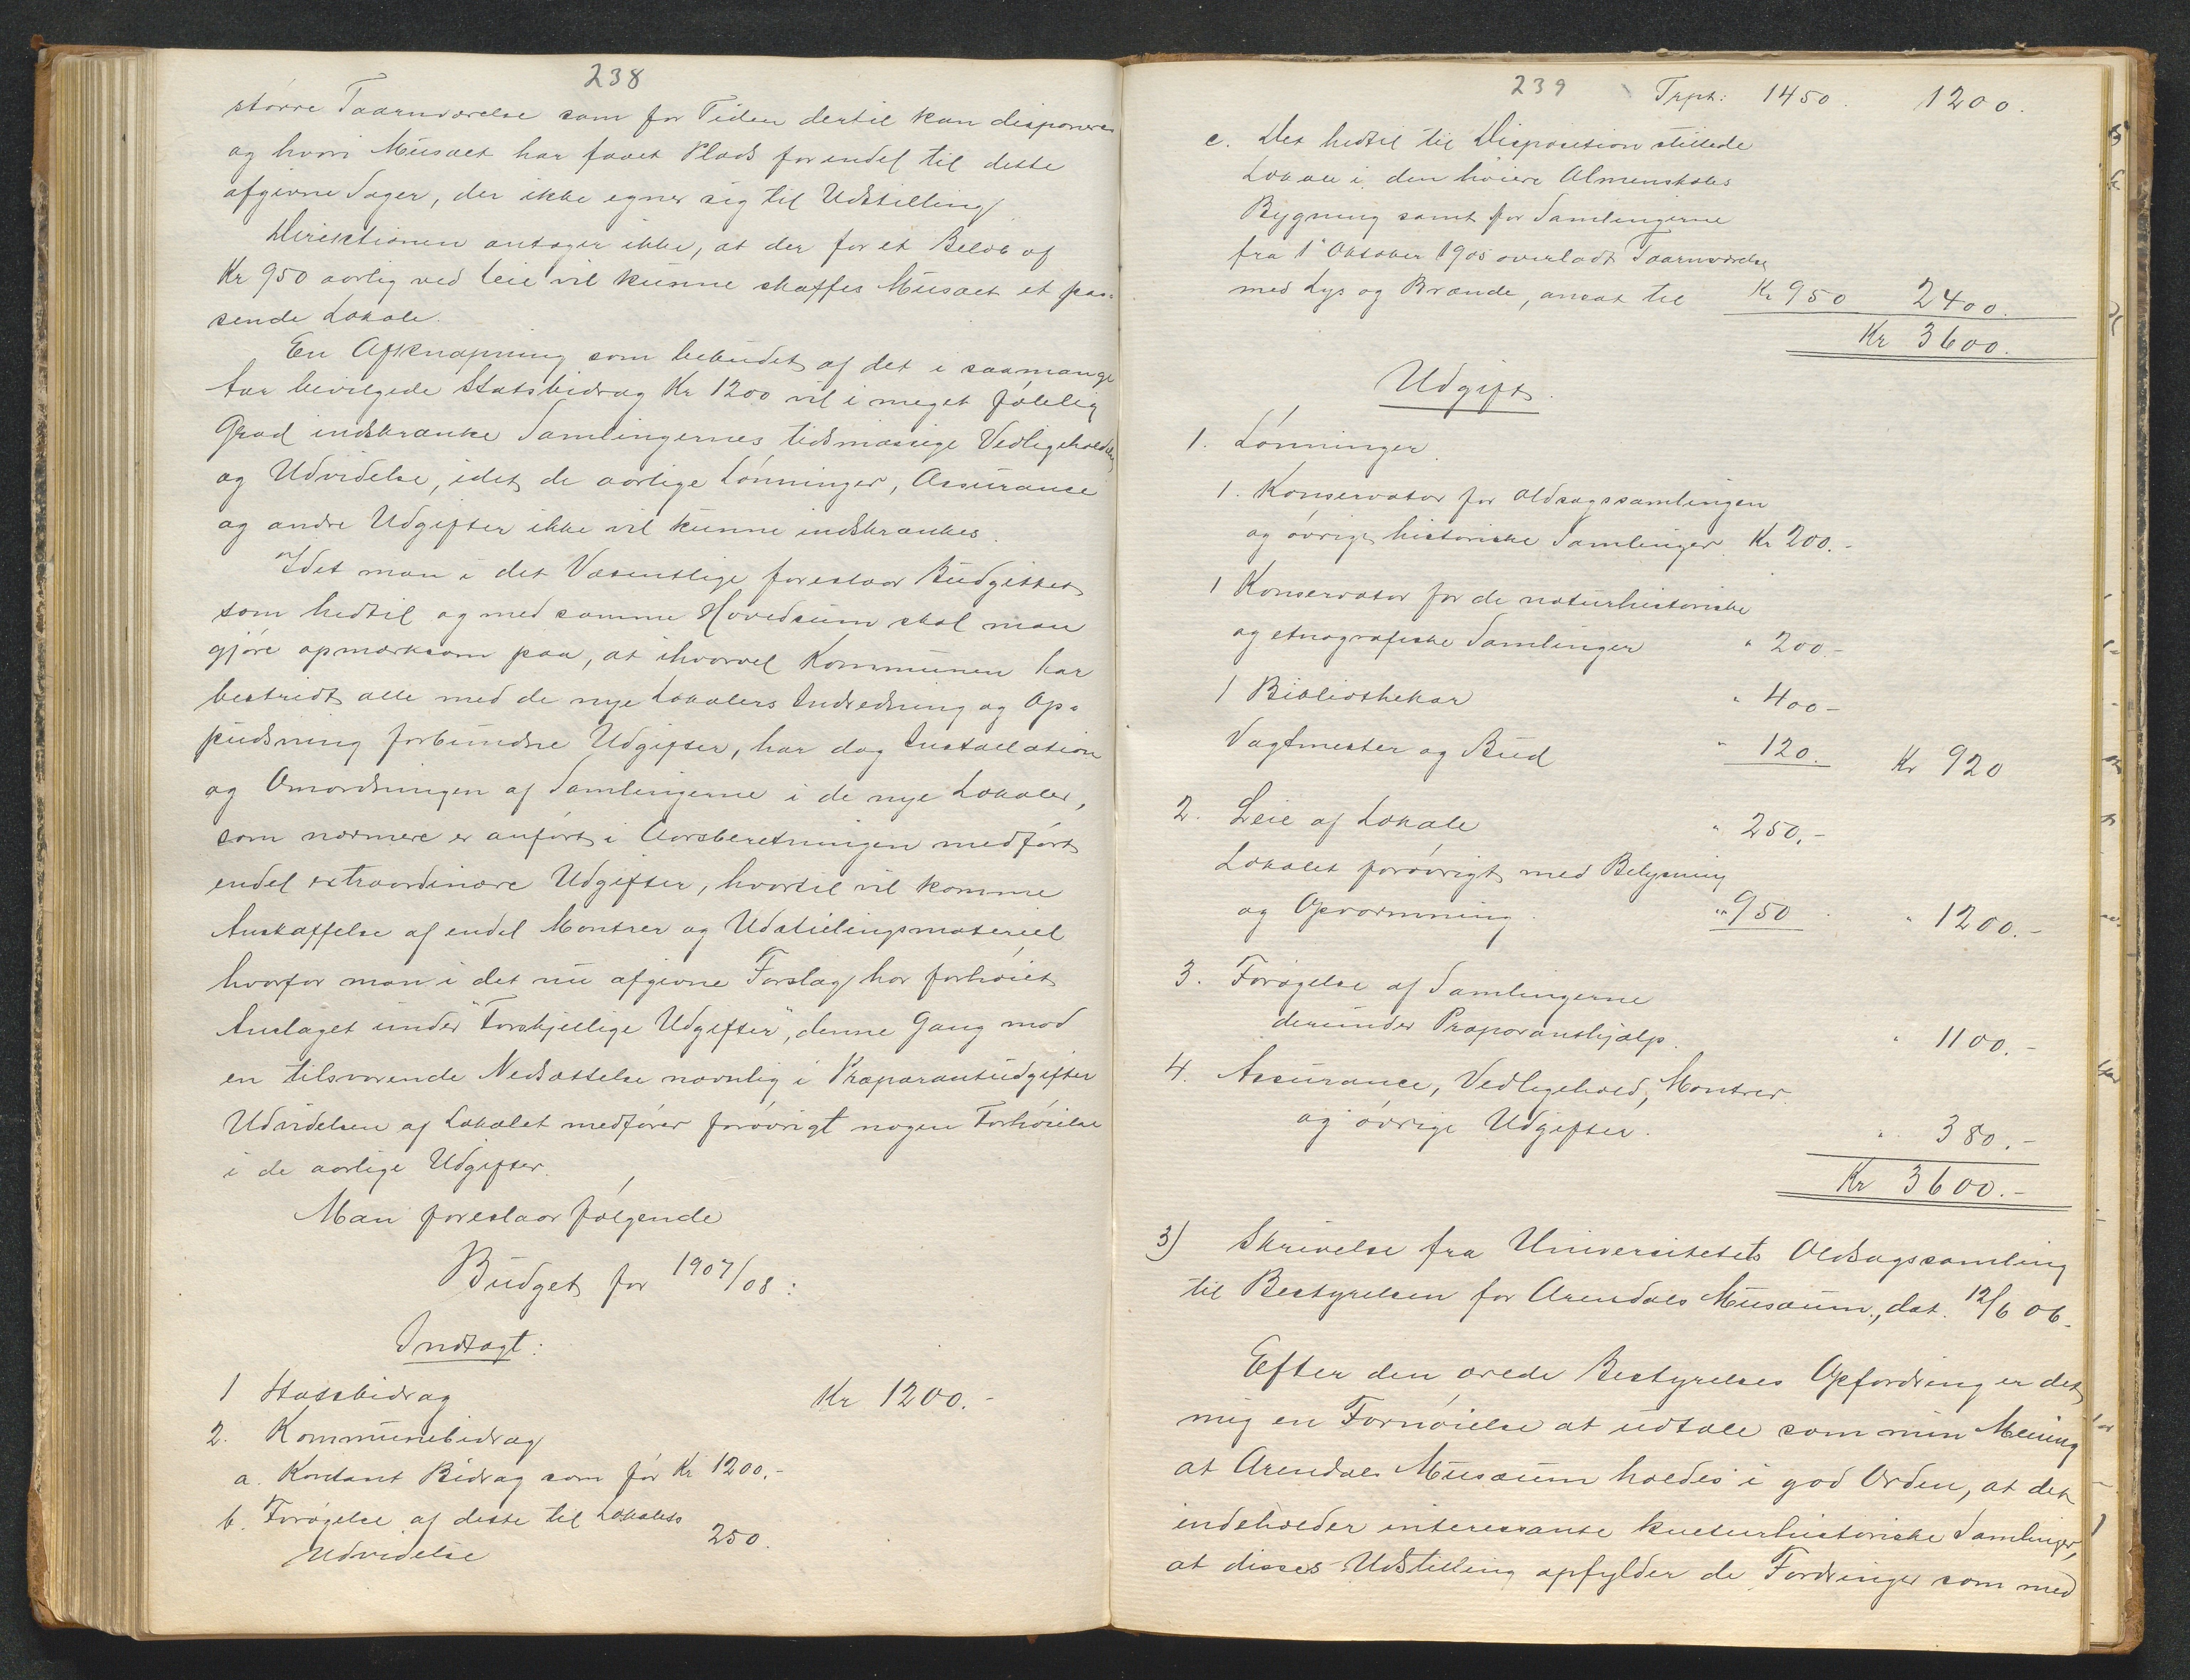 238
større Taarnværelse som for Tiden dertil kan disponeres
og hvori Musæet har faaet Plads for endel til dette
afgivne Sager, der ikke egner sig til Udstilling
Direktionen antager ikke, at der for et Beløb af
Kr 950 aarlig ved Leie vil kunne skaffes Musæet et pas-
sende Lokale.
En Afknapning som bebudet af det i saamange
Aar bevilgede Statsbidrag Kr 1200 vil i meget følelig
Grad indskrænke Samlingernes tidsmæssige Vedligeholdelse
og Udvidelse, idet de aarlige Lønninger, Assurance
og andre Udgifter ikke vil kunne indskrænkes.
Idet man i det Væsentlige foreslaar Budgettet
som hidtil og med samme Hovedsum skal man
gjøre opmærksom paa, at ihvorvel Kommunen har
bestridt alle med de nye Lokalers Indredning og Op-
pudsning forbundne Udgifter, har dog Installation
og Omordningen af Samlingerne i de nye Lokaler,
som nærmere er anført i Aarsberetningen medført
endel extraordinære Udgifter, hvortil vil komme
Anskaffelse af endel Montrer og Udstillingsmateriel
hvorfor man i det nu afgivne Forslag har forhøiet
Anslaget under "Forskjellige Udgifter", denne Gang mod
en tilsvarende Nedsættelse navnlig i Præparantudgifter
Udvidelsen af Lokalet medfører forøvrigt nogen Forhøielse
i de aarlige Udgifter.
Man foreslaar følgende
Budget for 1907/08:
Indtægt:
1 Statsbidrag Kr 1200.-
2. Kommunebidrag
a. Kontant Bidrag som før Kr 1200.-
b. Forøgelse af dette til Lokalets
Udvidelse 250.
239 Trpt: 1450. 1200.
c. Det hidtil til Disposition stillede
Lokale i den høiere Almenskoles
Bygning samt for Samlingerne
fra 1' Oktober 1905 overladt Taarnværelse
med Lys og Brænde, ansat til Kr 950 2400.
Kr 3600.
Udgift.
1. Lønninger.
1. Konservator for Oldsagssamlingen
og øvrige historiske Samlinger Kr 200.-
1 Konservator for de naturhistoriske
og etnografiske Samlinger " 200.-
1 Bibliothekar " 400-
Vagtmester og Bud " 120. Kr 920
2. Leie af Lokale " 250.-
Lokalet forøvrigt med Belysning
og Opvarmning. " 950. " 1200.-
3. Forøgelse af Samlingerne
derunder Præparanthjælp. " 1100.-
4. Assurance, Vedligehold, Montrer
og øvrige Udgifter. " 380.-
Kr 3600.-
3) Skrivelse fra Universitetets Oldsagssamling
til Bestyrelsen for Arendals Musæum, dat. 12/6 06.
Efter den ærede Bestyrelses Opfordring er det
mig en Fornøielse at udtale som min Mening
at Arendals Musæum holdes i god Orden, at det
indeholder interessante kulturhistoriske Samlinger,
at disses Udstilling opfylder de Fordringer som med